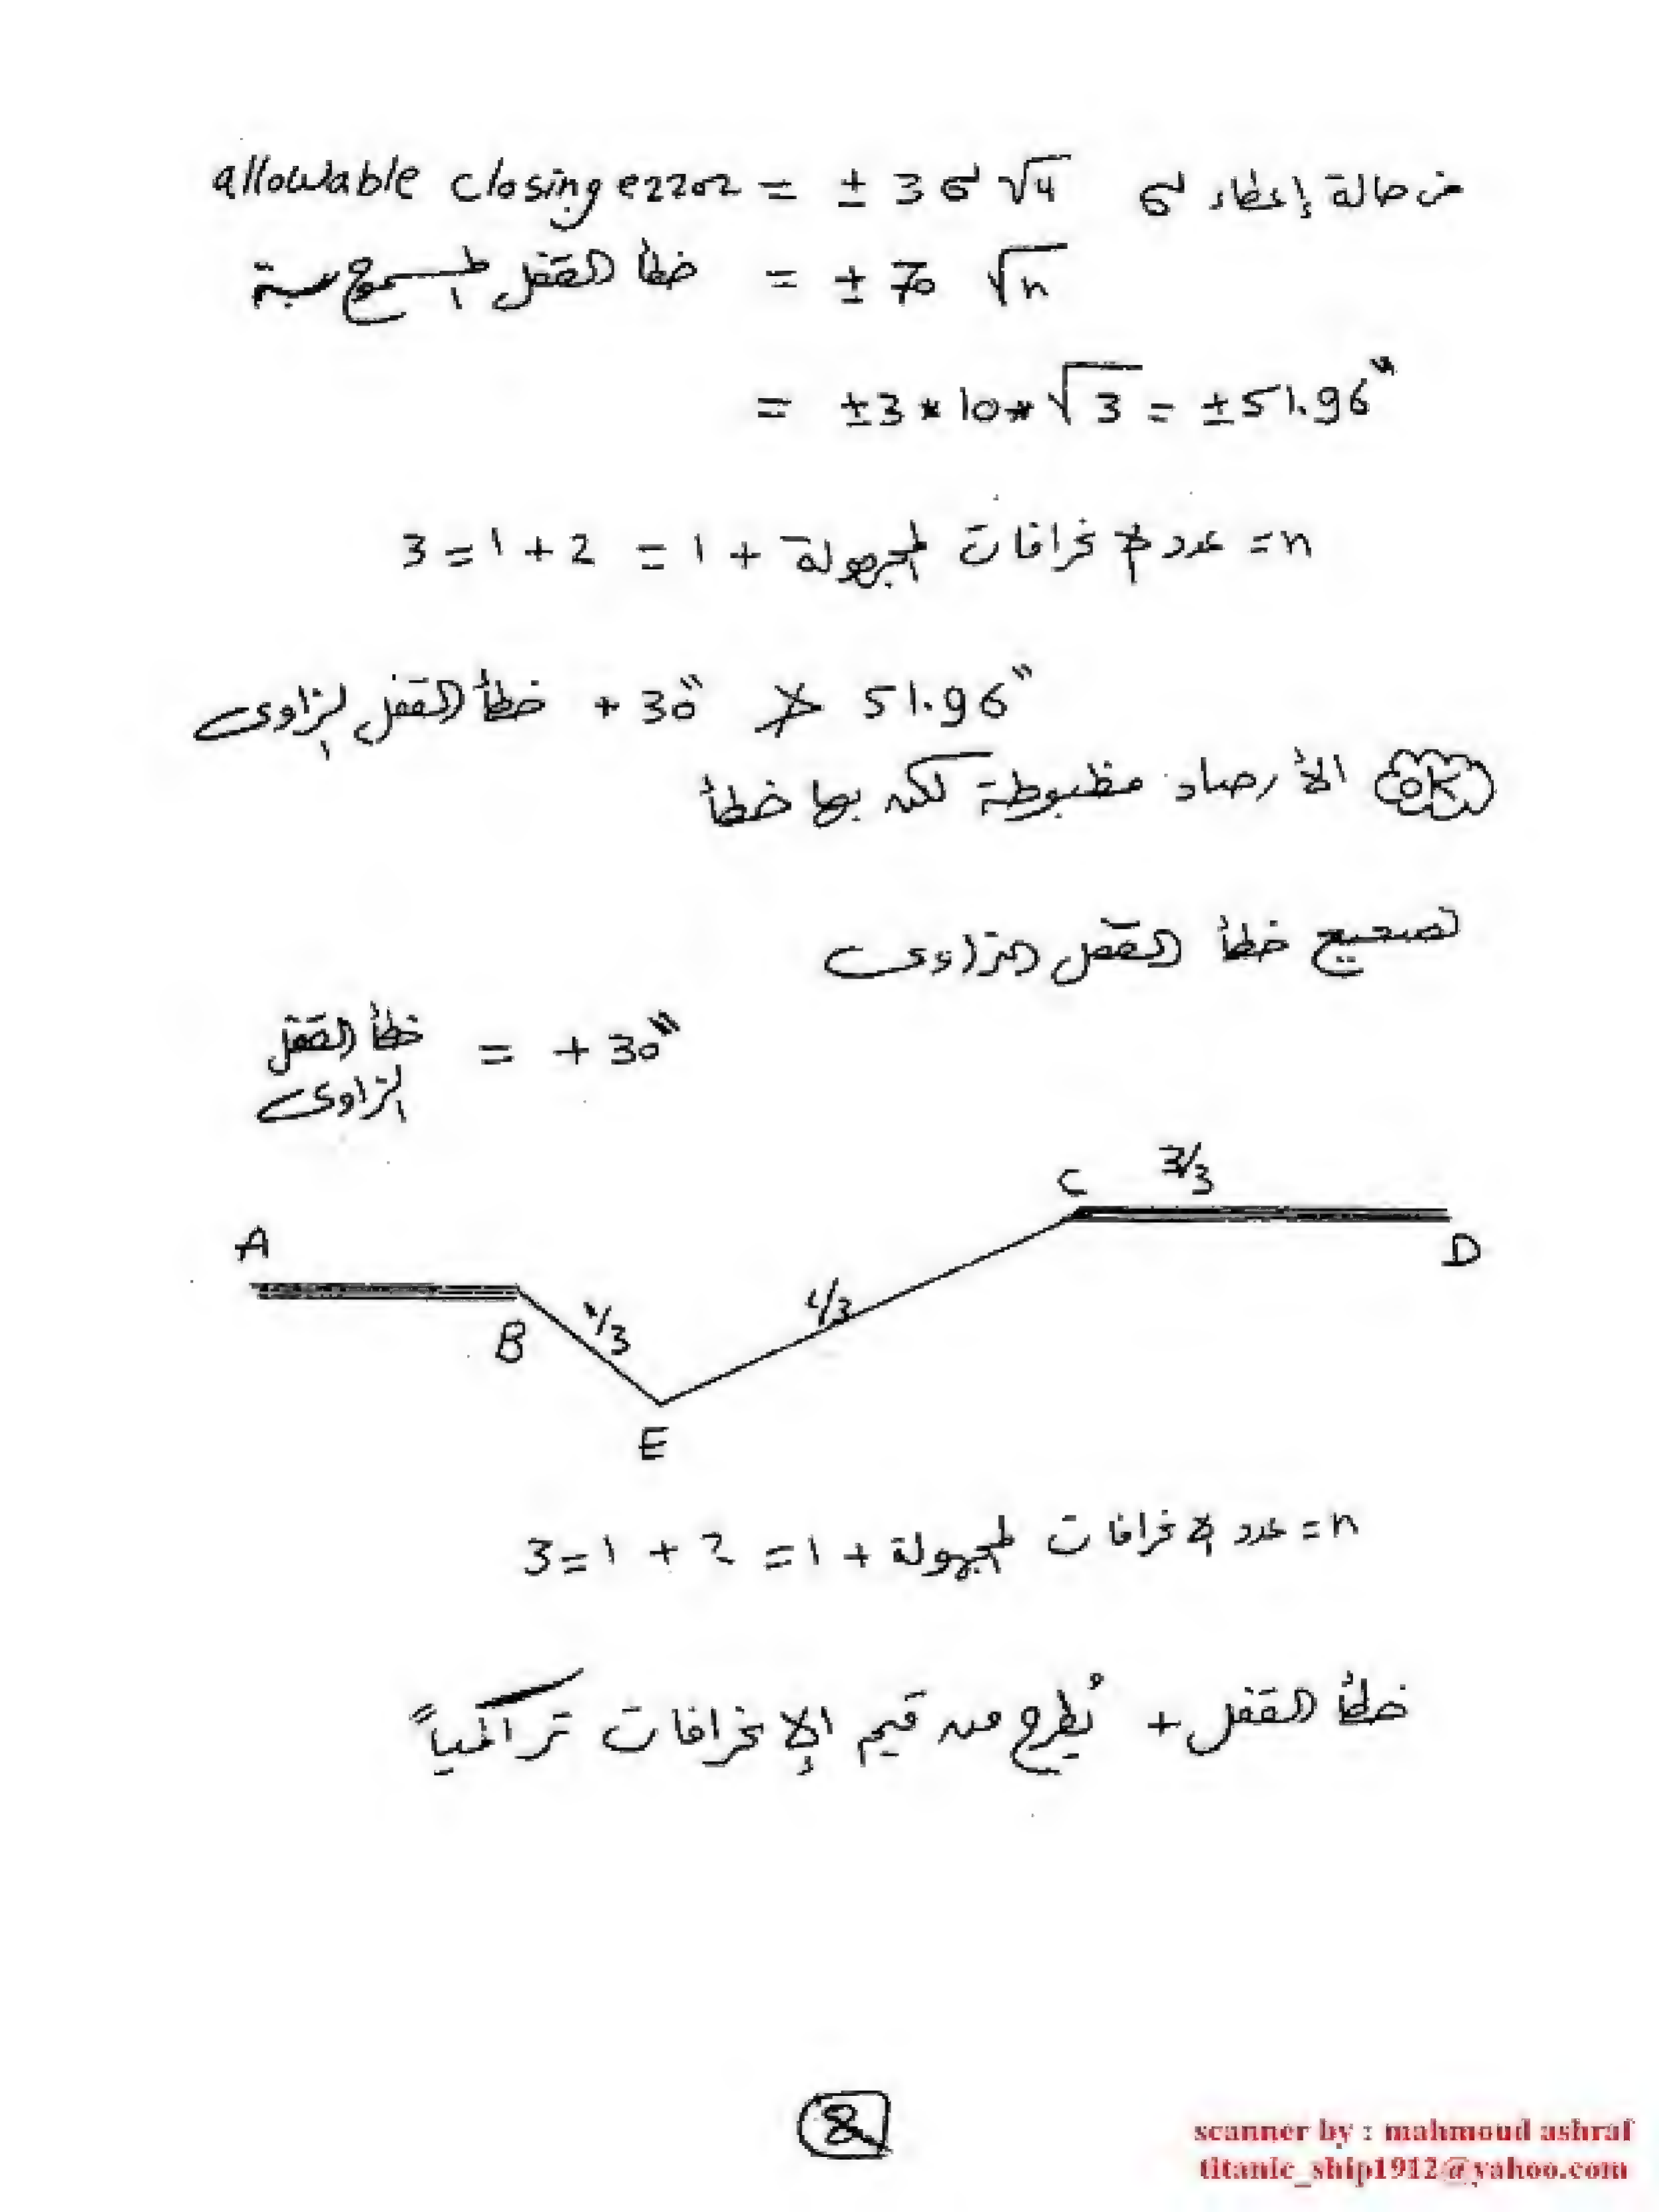 allowable closing error = ± 3 σ √n في حالة إعطاء σ
خطأ القفل المسموح به = ± 70 √n
= ±3 * 10 * √3 = ±51.96"
n = عدد الانحرافات المجهولة + 1 = 2 + 1 = 3
خطأ القفل الزاوى + 30" ≯ 51.96"
OK الأرصاد مظبوطة لكن بها خطأ
تصحيح خطأ القفل الزاوى
خطأ القفل الزاوى = + 30"
C 3/3
A D
B 1/3 2/3
E
n = عدد الانحرافات المجهولة + 1 = 2 + 1 = 3
خطأ القفل + يُطرح من قيم الإنحرافات تراكمياً
8
scanner by : mahmoud ashraf
titanic_ship1912@yahoo.com